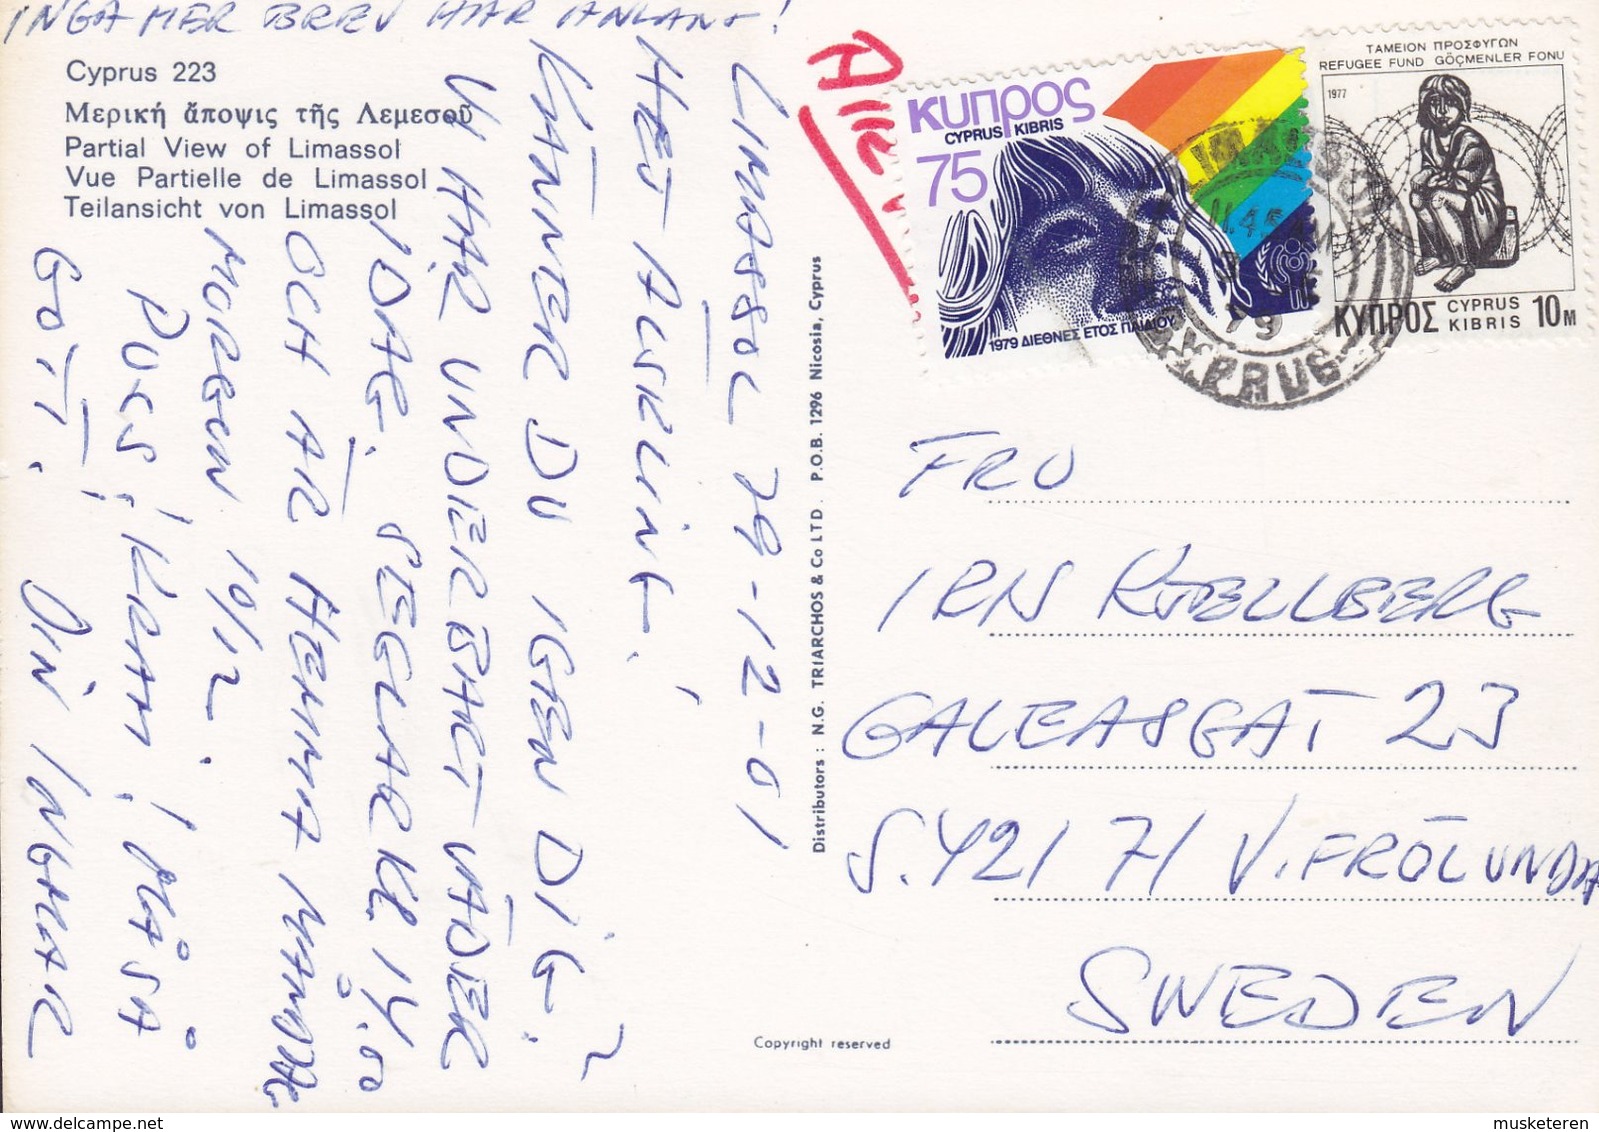 INGA MER BREV HAR ANLÄNT!
Cyprus 223
Μερική ἄποψις τῆς Λεμεσοῦ
Partial View of Limassol
Vue Partielle de Limassol
Teilansicht von Limassol
LIMASSOL 79-12-01
HEJ ÄLSKLING,
KÄNNER DU IGEN DIG?
VI HAR UNDERBART VÄDER
IDAG. SEGLAR KL 14.00
OCH ÄR HEMMA MÅNDAG
MORGON 10/12.
PUSS! KRAM! MÅSÅ
GOTT! DIN INGMAR
Distributors : N.G. TRIARCHOS & Co LTD. P.O.B. 1296 Nicosia, Cyprus
Copyright reserved
ΚΥΠΡΟΣ
CYPRUS KIBRIS
75
1979 ΔΙΕΘΝΕΣ ΕΤΟΣ ΠΑΙΔΙΟΥ
ΤΑΜΕΙΟΝ ΠΡΟΣΦΥΓΩΝ
REFUGEE FUND GÖÇMENLER FONU
1977
ΚΥΠΡΟΣ CYPRUS KIBRIS 10M
79
CYPRUS
FRU
IRN KJELLBERG
GALEASGAT 23
S.421 71 V. FRÖLUNDA
SWEDEN
musketeren